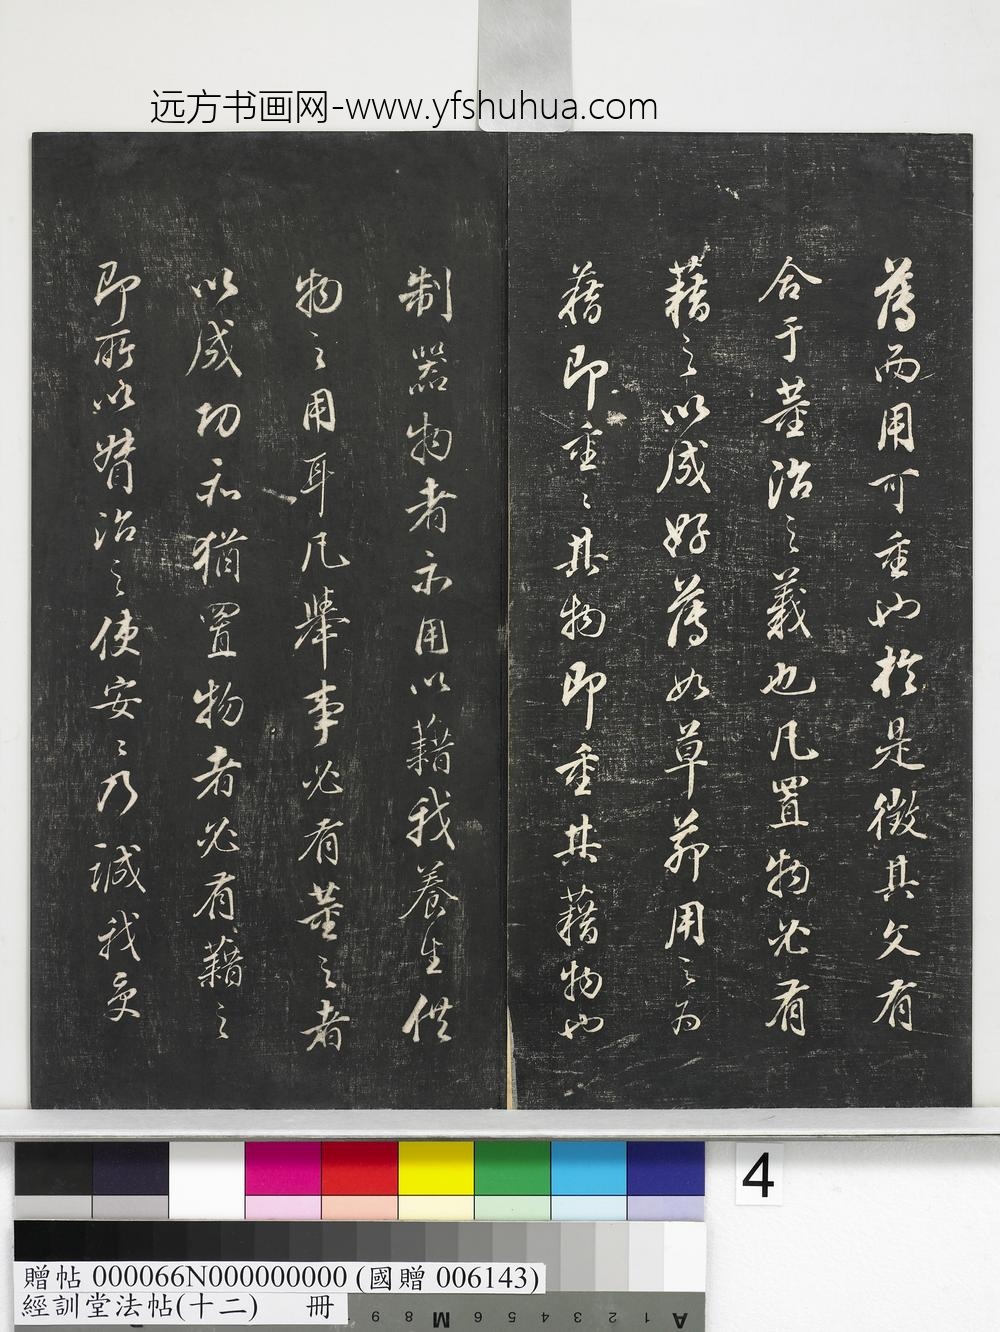 远方书画网-www.yfshuhua.com
薄而用可重也於是徵其文有
合于董治之義也凡置物必有
藉之以成好薄如草茅用之為
藉即重〻其物即重其藉物也
制器物者亦用以藉我養生供
物之用耳凡舉事必有董之者
以成功亦猶置物者必有藉之
即所以督治之使安〻乃誠我
4
贈帖 000066N000000000 (國贈 006143)
經訓堂法帖(十二) 冊
A 1 2 3 4 5 6 M 8 9